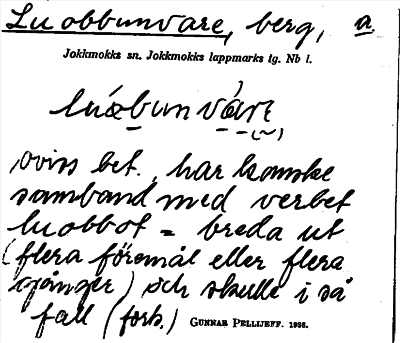 Luobbunvare, berg, a.
Jokkmokks sn. Jokkmokks lappmarks tg. Nb l.
luɑ́bun várɛ
oviss bet., har kanske
samband med verbet
luobbot = breda ut
(flera föremål eller flera
gånger) och skulle i så
fall (forts.) GUNNAR PELLIJEFF. 1956.